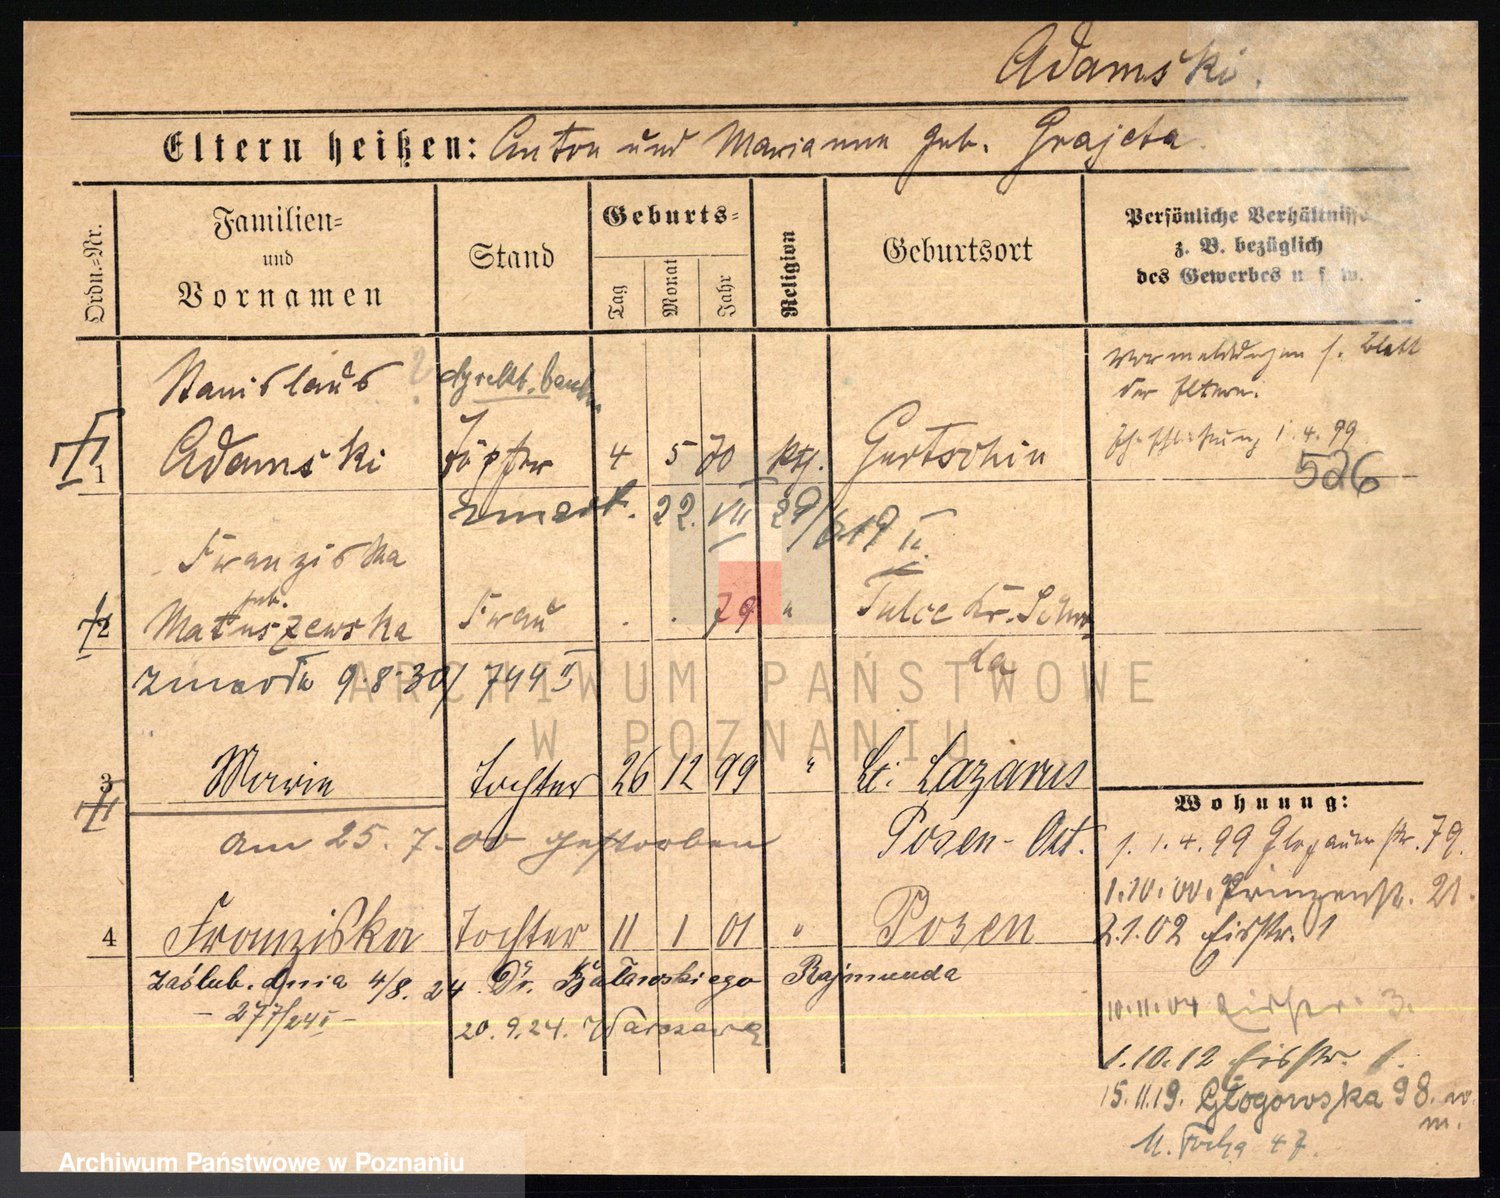 Adamski.
Eltern heißen: Anton und Marianna geb. Grajeta
Ordn.-Nr.
Familien-
und
Vornamen
Stand
Geburts-
Tag
Monat
Jahr
Religion
Geburtsort
Persönliche Verhältnisse
z. B. bezüglich
des Gewerbes u. s. w.
Stanislaus
Vormeldungen s. Blatt
der Eltern.
1 Adamski Töpfer 4 5 70 kth. Gurtschin
Eheschließung 1.4.99
526
zmarł. 22. VII 29/ 619 II.
Franziska
geb.
2 Matuszewska Frau . . 79 " Tulce Kr. Schro
da
zmarła 9.8.30/ 744 II
3 Marie Tochter 26 12 99 " St. Lazarus
Wohnung:
am 25. 7. 00 gestorben
Posen-Ost.
1. 1. 4. 99 Glogauer str. 79.
1.10.00. Prinzenstr. 21.
4 Franziska Tochter 11 1 01 " Posen
2.1.02 Eisstr. 1
zaślub. dnia 4/8. 24. Dr. Rajmunda
- 277/24 I -
20. 9. 24. Warszawa
10.11.04 3.
1.10.12 Eisstr. 1.
15.11.19. Głogowska 98. w.
m.
M. Focha 47.
ARCHIWUM PAŃSTWOWE
W POZNANIU
Archiwum Państwowe w Poznaniu